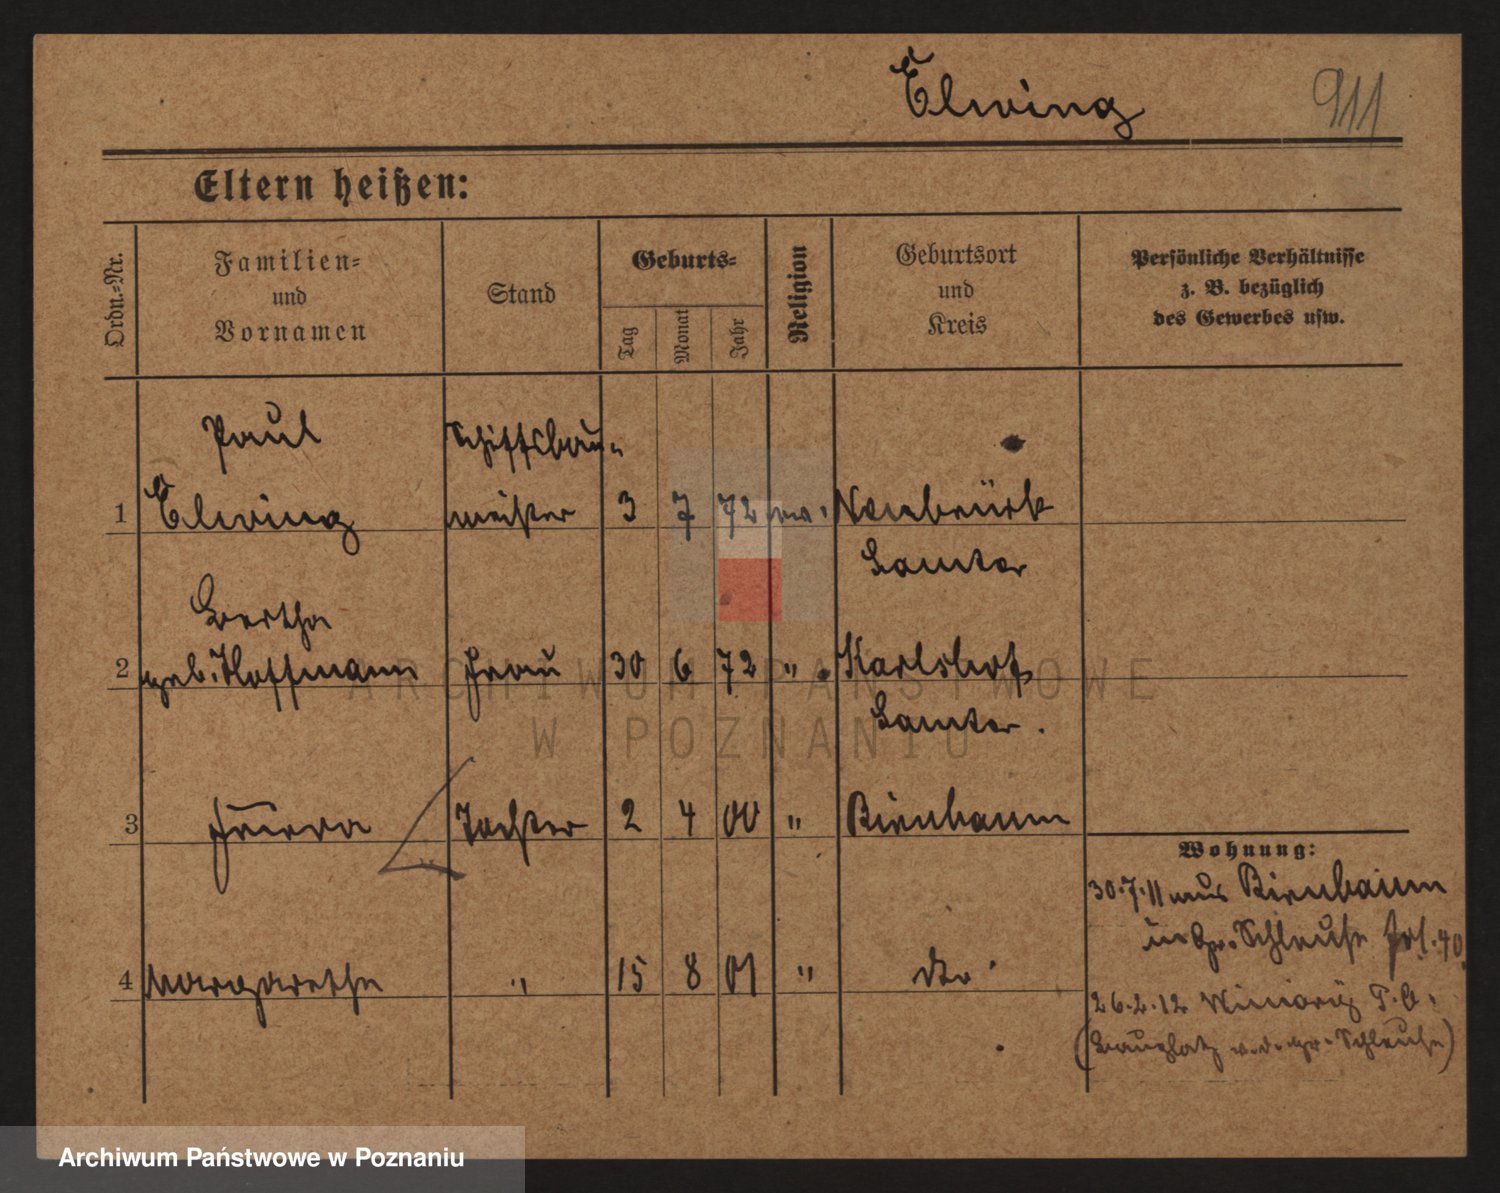 Elwing
911
Eltern heißen:
Ordn.-Nr.
Familien-
und
Vornamen
Stand
Geburts-
Tag
Monat
Jahr
Religion
Geburtsort
und
Kreis
Persönliche Verhältnisse
z. B. bezüglich
des Gewerbes usw.
Paul Schiffsbau-
1 Elwing meister 3 7 72 ev. Neubrück
Samter
Bertha
2 geb. Hoffmann Frau 30 6 72 " Karlshof
Samter.
3 Tochter 2 4 00 " Birnbaum
Wohnung:
30.7.11 aus Birnbaum
in Gr. Schleuse 40
4 Margarethe " 15 8 01 " dto
26.2.12 T. O.
(Bauplatz v. d. gr. Schleuse)
ARCHIWUM PAŃSTWOWE
W POZNANIU
Archiwum Państwowe w Poznaniu